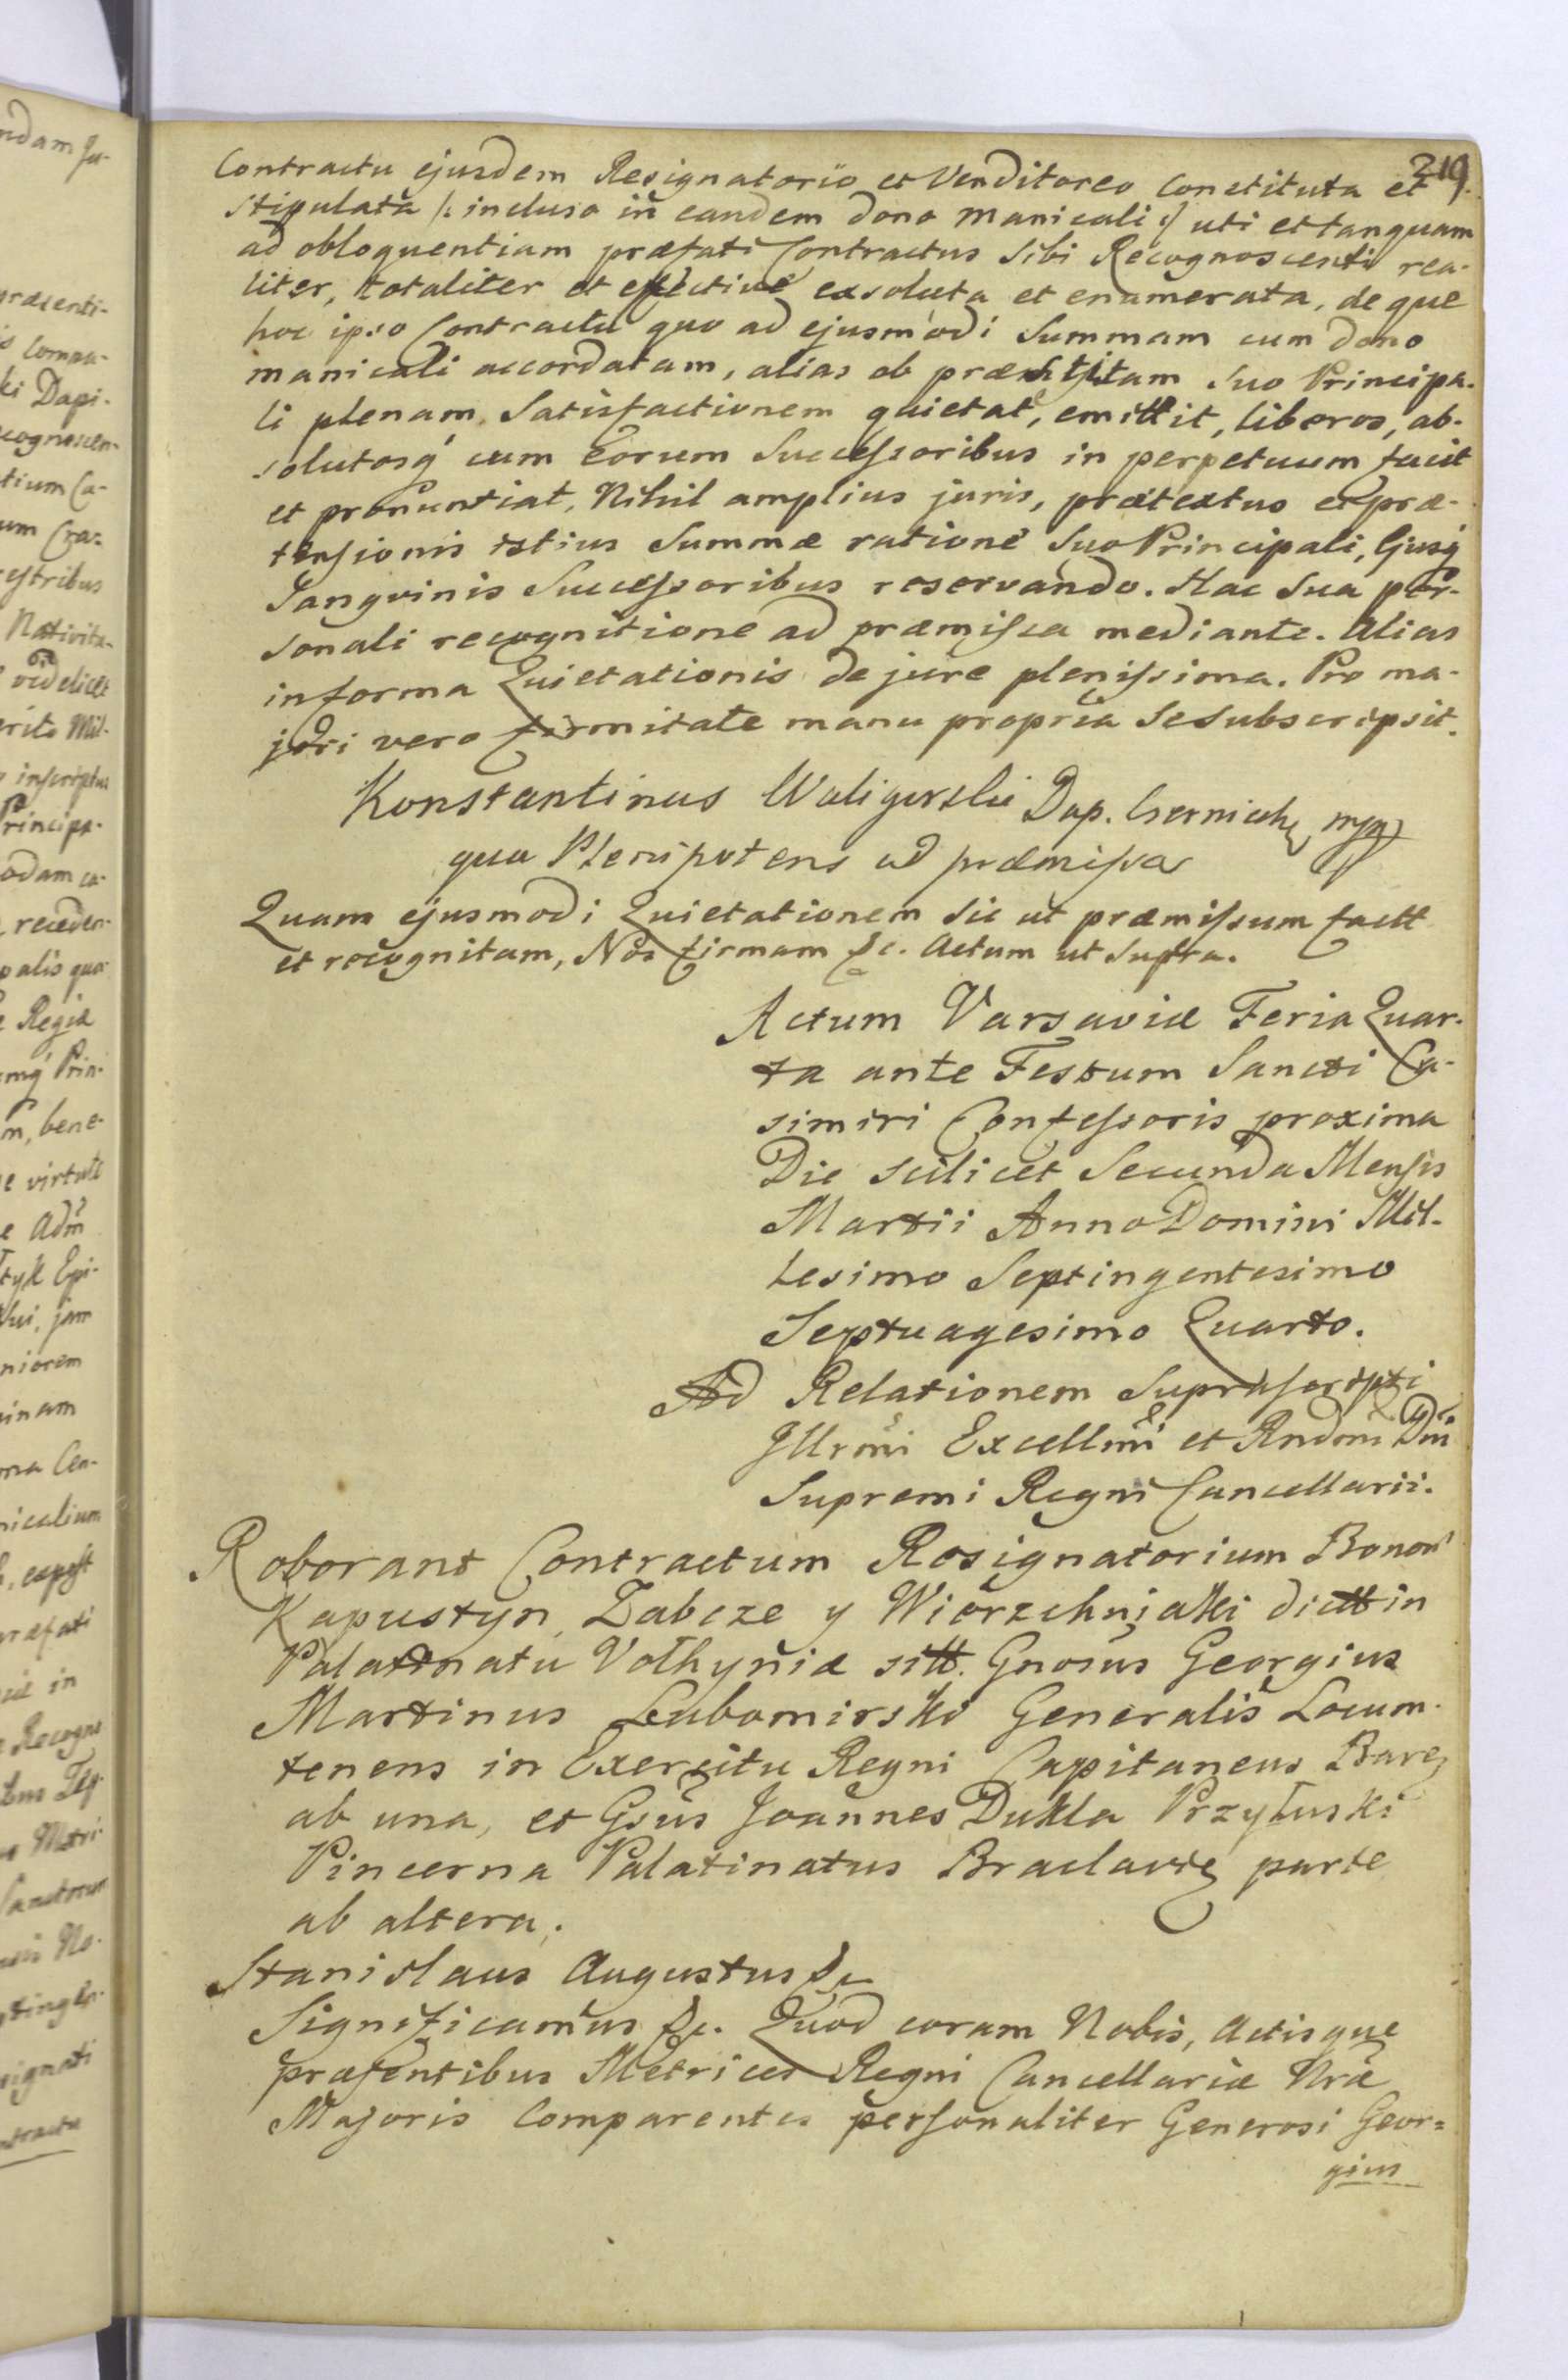 219.
Contractu ejusdem Resignatorio et Venditoreo Constituta et
stipulata /: incluso in eandem dono manicali :/ uti et tanquam
ad obloquentiam præfati Contractus sibi Recognoscenti rea-
liter, totaliter et effective exsoluta et enumerata, de que
hoc ipso Contractu quo ad ejusmodi Summam cum dono
manicali accordatam, alias ob præstitam suo Principa-
li plenam Satisfactionem quietat, emittit, liberos, ab-
solutosq́ cum eorum Successoribus in perpetuum facit
et pronuntiat, Nihil amplius juris, prætextus et præ-
tensionis istius Summæ ratione suo Principali, Ejusq́
Sangvinis Successoribus reservando. Hac Sua per-
sonali recognitione ad præmissa mediante. Alias
in forma Quietationis de jure plenissima. Pro ma-
jori vero firmitate manu propria se subscripsit.
Konstantinus Waligurski Dap. Czernich mpp
qua Plenipotens ad præmissa
Quam ejusmodi Quietationem sic ut præmissum factt
et recognitam, Nos firmam &c. Actum ut supra.
Actum Varsaviæ Feria Quar-
ta ante Festum Sancti Ca-
simiri Confessoris proxima
Die scilicet Secunda Mensis
Martii Anno Domini Mil-
lesimo Septingentesimo
Septuagesimo Quarto.
Ad Relationem Suprascripti
Illrmi Excellmi et Rndmi Dni
Supremi Regni Cancellarii.
Roborant Contractum Resignatorium Bonor
Kapustyn, Zabcze y Wiorzchniaki dictt in
Palatinatu Volhyniæ sitt. Gnosus Georgius
Martinus Lubomirski Generalis Locum-
tenens in Exercitu Regni Capitaneus Bare
ab una, et Gsus Joannes Dukla Przyłuski
Pincerna Palatinatus Braclavie parte
ab altera.
Stanislaus Augustus &c
Significamus &c. Quod coram Nobis, Actisque
præsentibus Metrices Regni Cancellariæ Nræ
Majoris Comparentes personaliter Generosi Geor=
gius